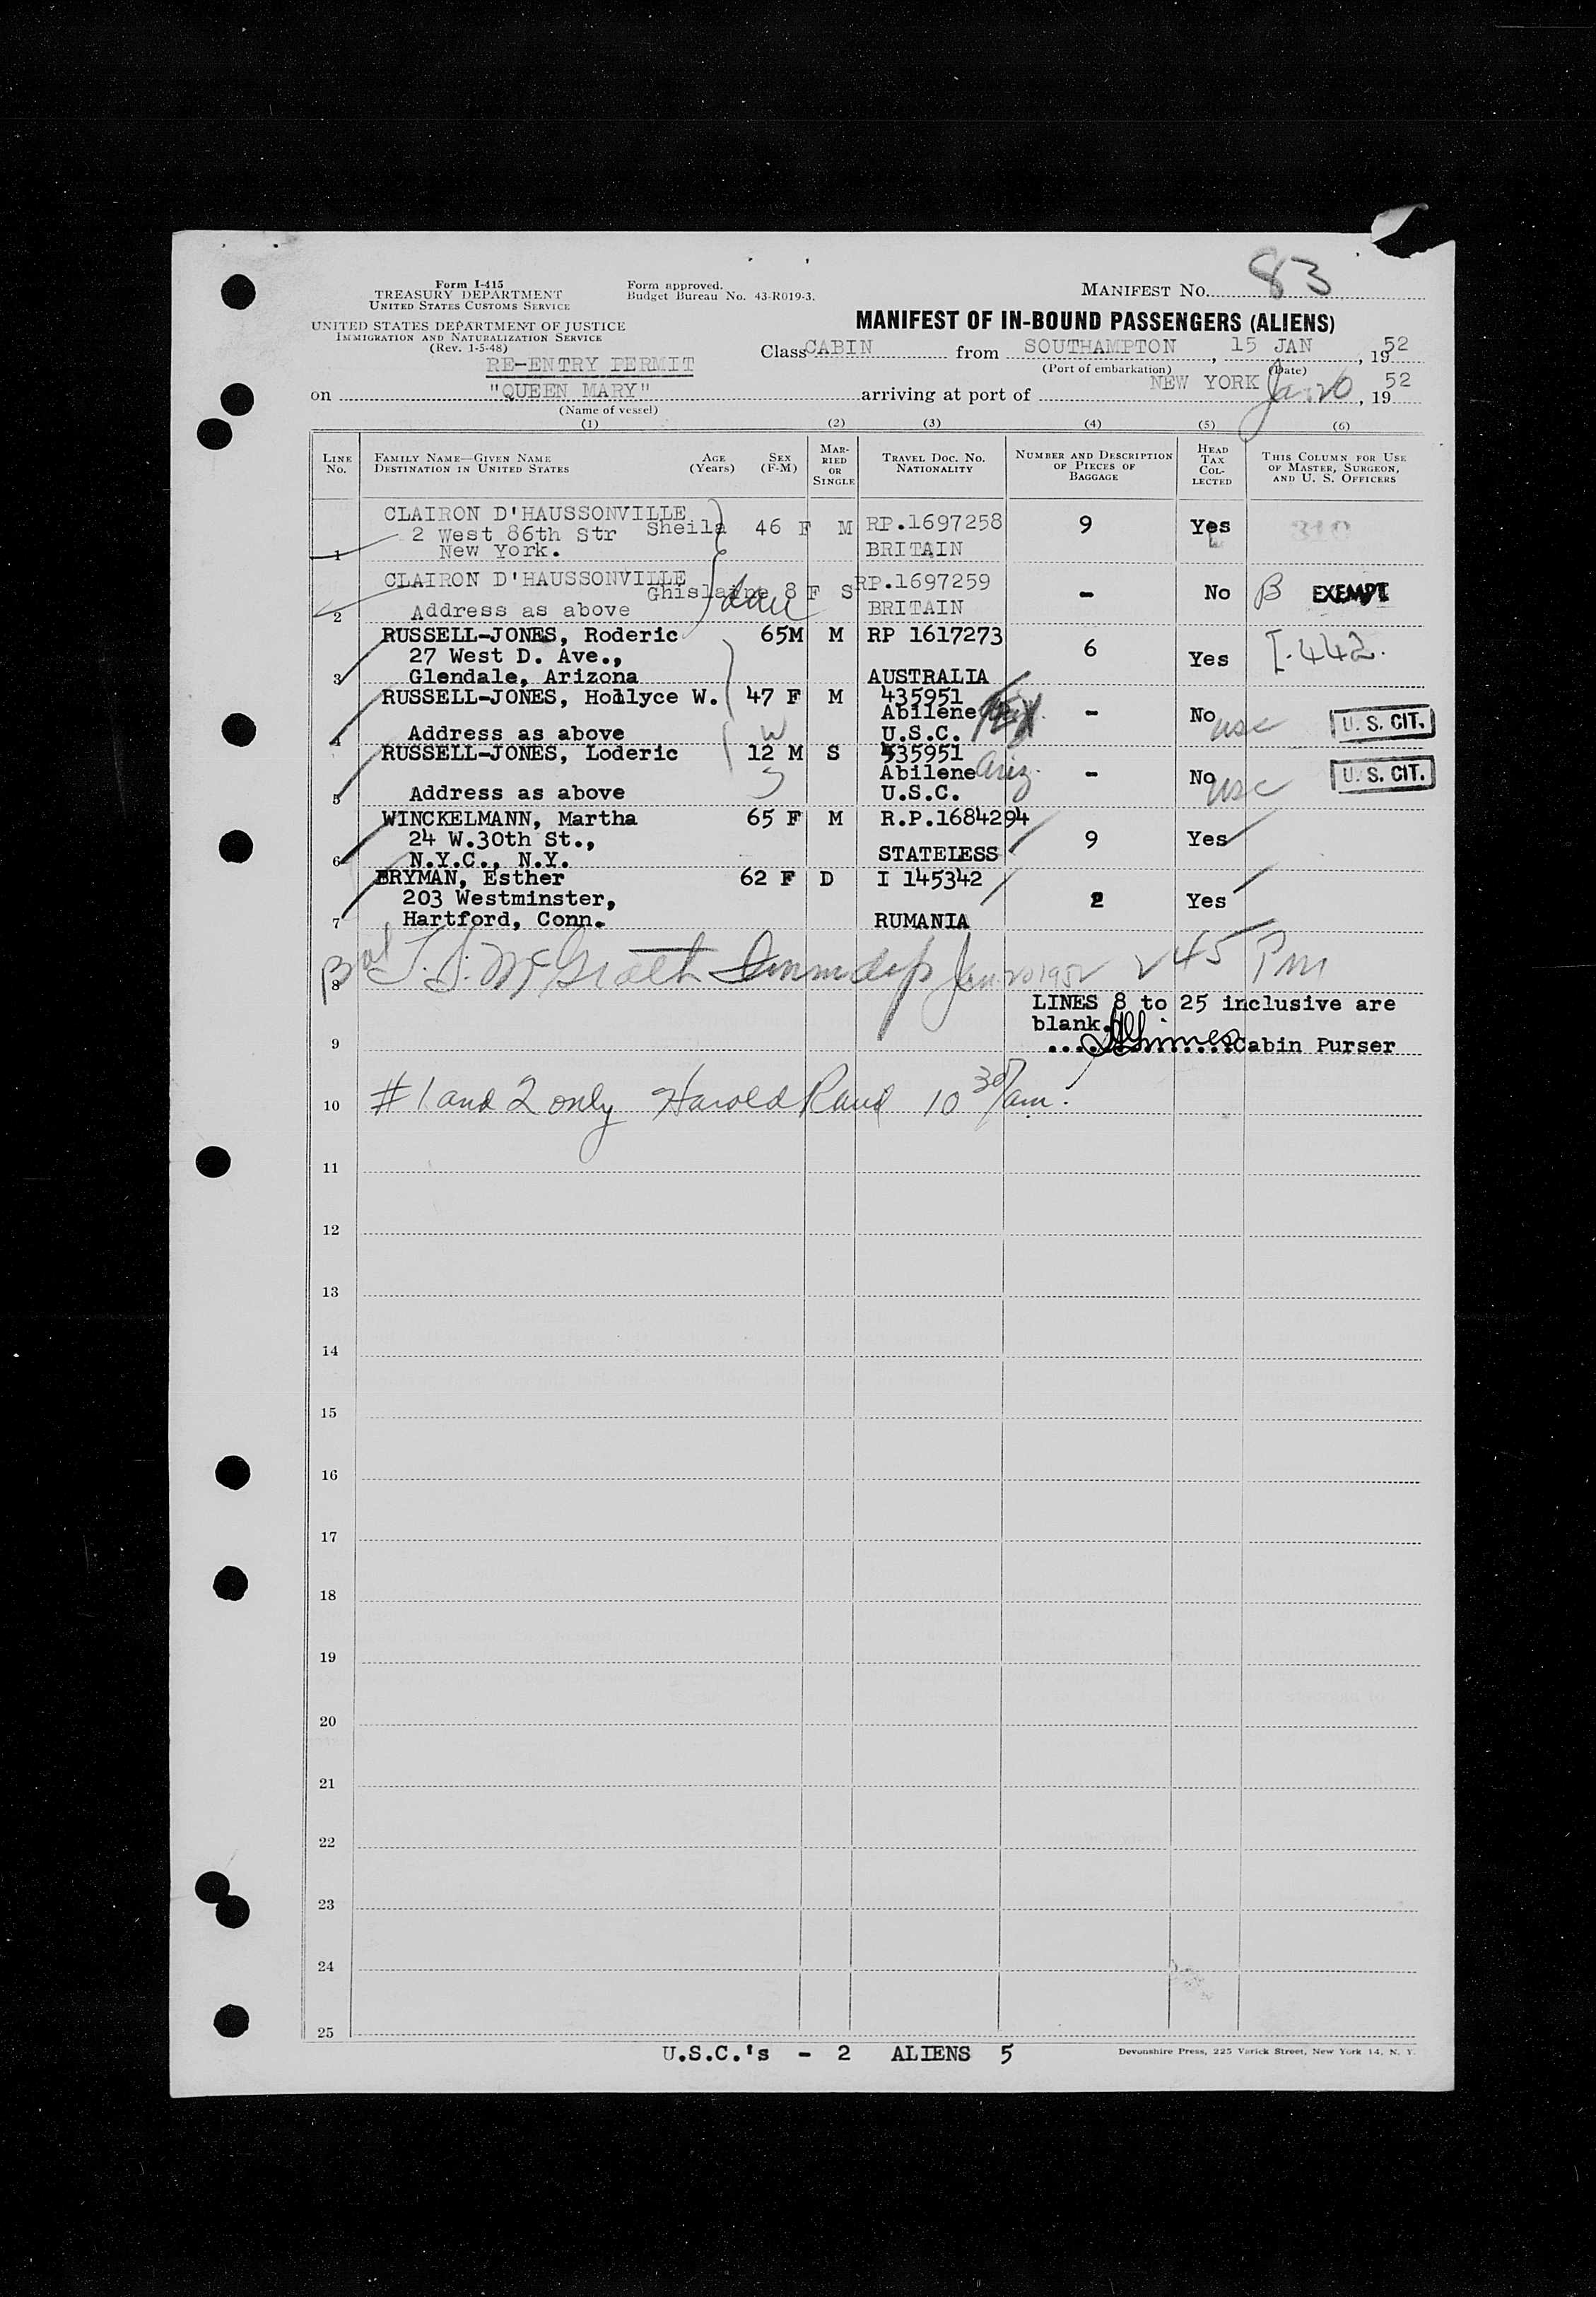 83
Form I-415
TREASURY DEPARTMENT
UNITED STATES CUSTOMS SERVICE
Form approved.
Budget Bureau No. 43-R019-3.
MANIFEST NO.
UNITED STATES DEPARTMENT OF JUSTICE
IMMIGRATION AND NATURALIZATION SERVICE
(Rev. 1-5-48)
MANIFEST OF IN-BOUND PASSENGERS (ALIENS)
RE-ENTRY PERMIT
Class CABIN from SOUTHAMPTON, 15 JAN, 1952
(Port of embarkation) (Date)
on "QUEEN MARY" arriving at port of NEW YORK Jan 20, 1952
(Name of vessel)
(1) (2) (3) (4) (5) (6)
LINE No. FAMILY NAME—GIVEN NAME DESTINATION IN UNITED STATES AGE (Years) SEX (F-M) MARRIED OR SINGLE TRAVEL DOC. NO. NATIONALITY NUMBER AND DESCRIPTION OF PIECES OF BAGGAGE HEAD TAX COLLECTED THIS COLUMN FOR USE OF MASTER, SURGEON, AND U. S. OFFICERS
CLAIRON D'HAUSSONVILLE
2 West 86th Str Sheila 46 F M RP.1697258 9 Yes 310
1 New York. BRITAIN
CLAIRON D'HAUSSONVILLE
Ghislaine 8 F S RP.1697259 - No B EXEMPT
dau
2 Address as above BRITAIN
RUSSELL-JONES, Roderic 65M M RP 1617273
27 West D. Ave., 6 Yes I.442.
3 Glendale, Arizona AUSTRALIA
RUSSELL-JONES, Hollyce W. 47 F M 435951
Abilene - No usc U. S. CIT.
4 Address as above W U.S.C.
RUSSELL-JONES, Loderic 12 M S 535951
Abilene Ariz. - No usc U. S. CIT.
5 Address as above S U.S.C.
WINCKELMANN, Martha 65 F M R.P.1684294
24 W.30th St., 9 Yes
6 N.Y.C., N.Y. STATELESS
BRYMAN, Esther 62 F D I 145342
203 Westminster, 2 Yes
7 Hartford, Conn. RUMANIA
T. J. McGrath Immdisp Jan 20 1952 2 45 Pm
8
LINES 8 to 25 inclusive are
blank.
9 Cabin Purser
10 # 1 and 2 only Harold Rand 10 30/am.
11
12
13
14
15
16
17
18
19
20
21
22
23
24
25
U.S.C.'s - 2 ALIENS 5
Devonshire Press, 225 Varick Street, New York 14, N. Y.